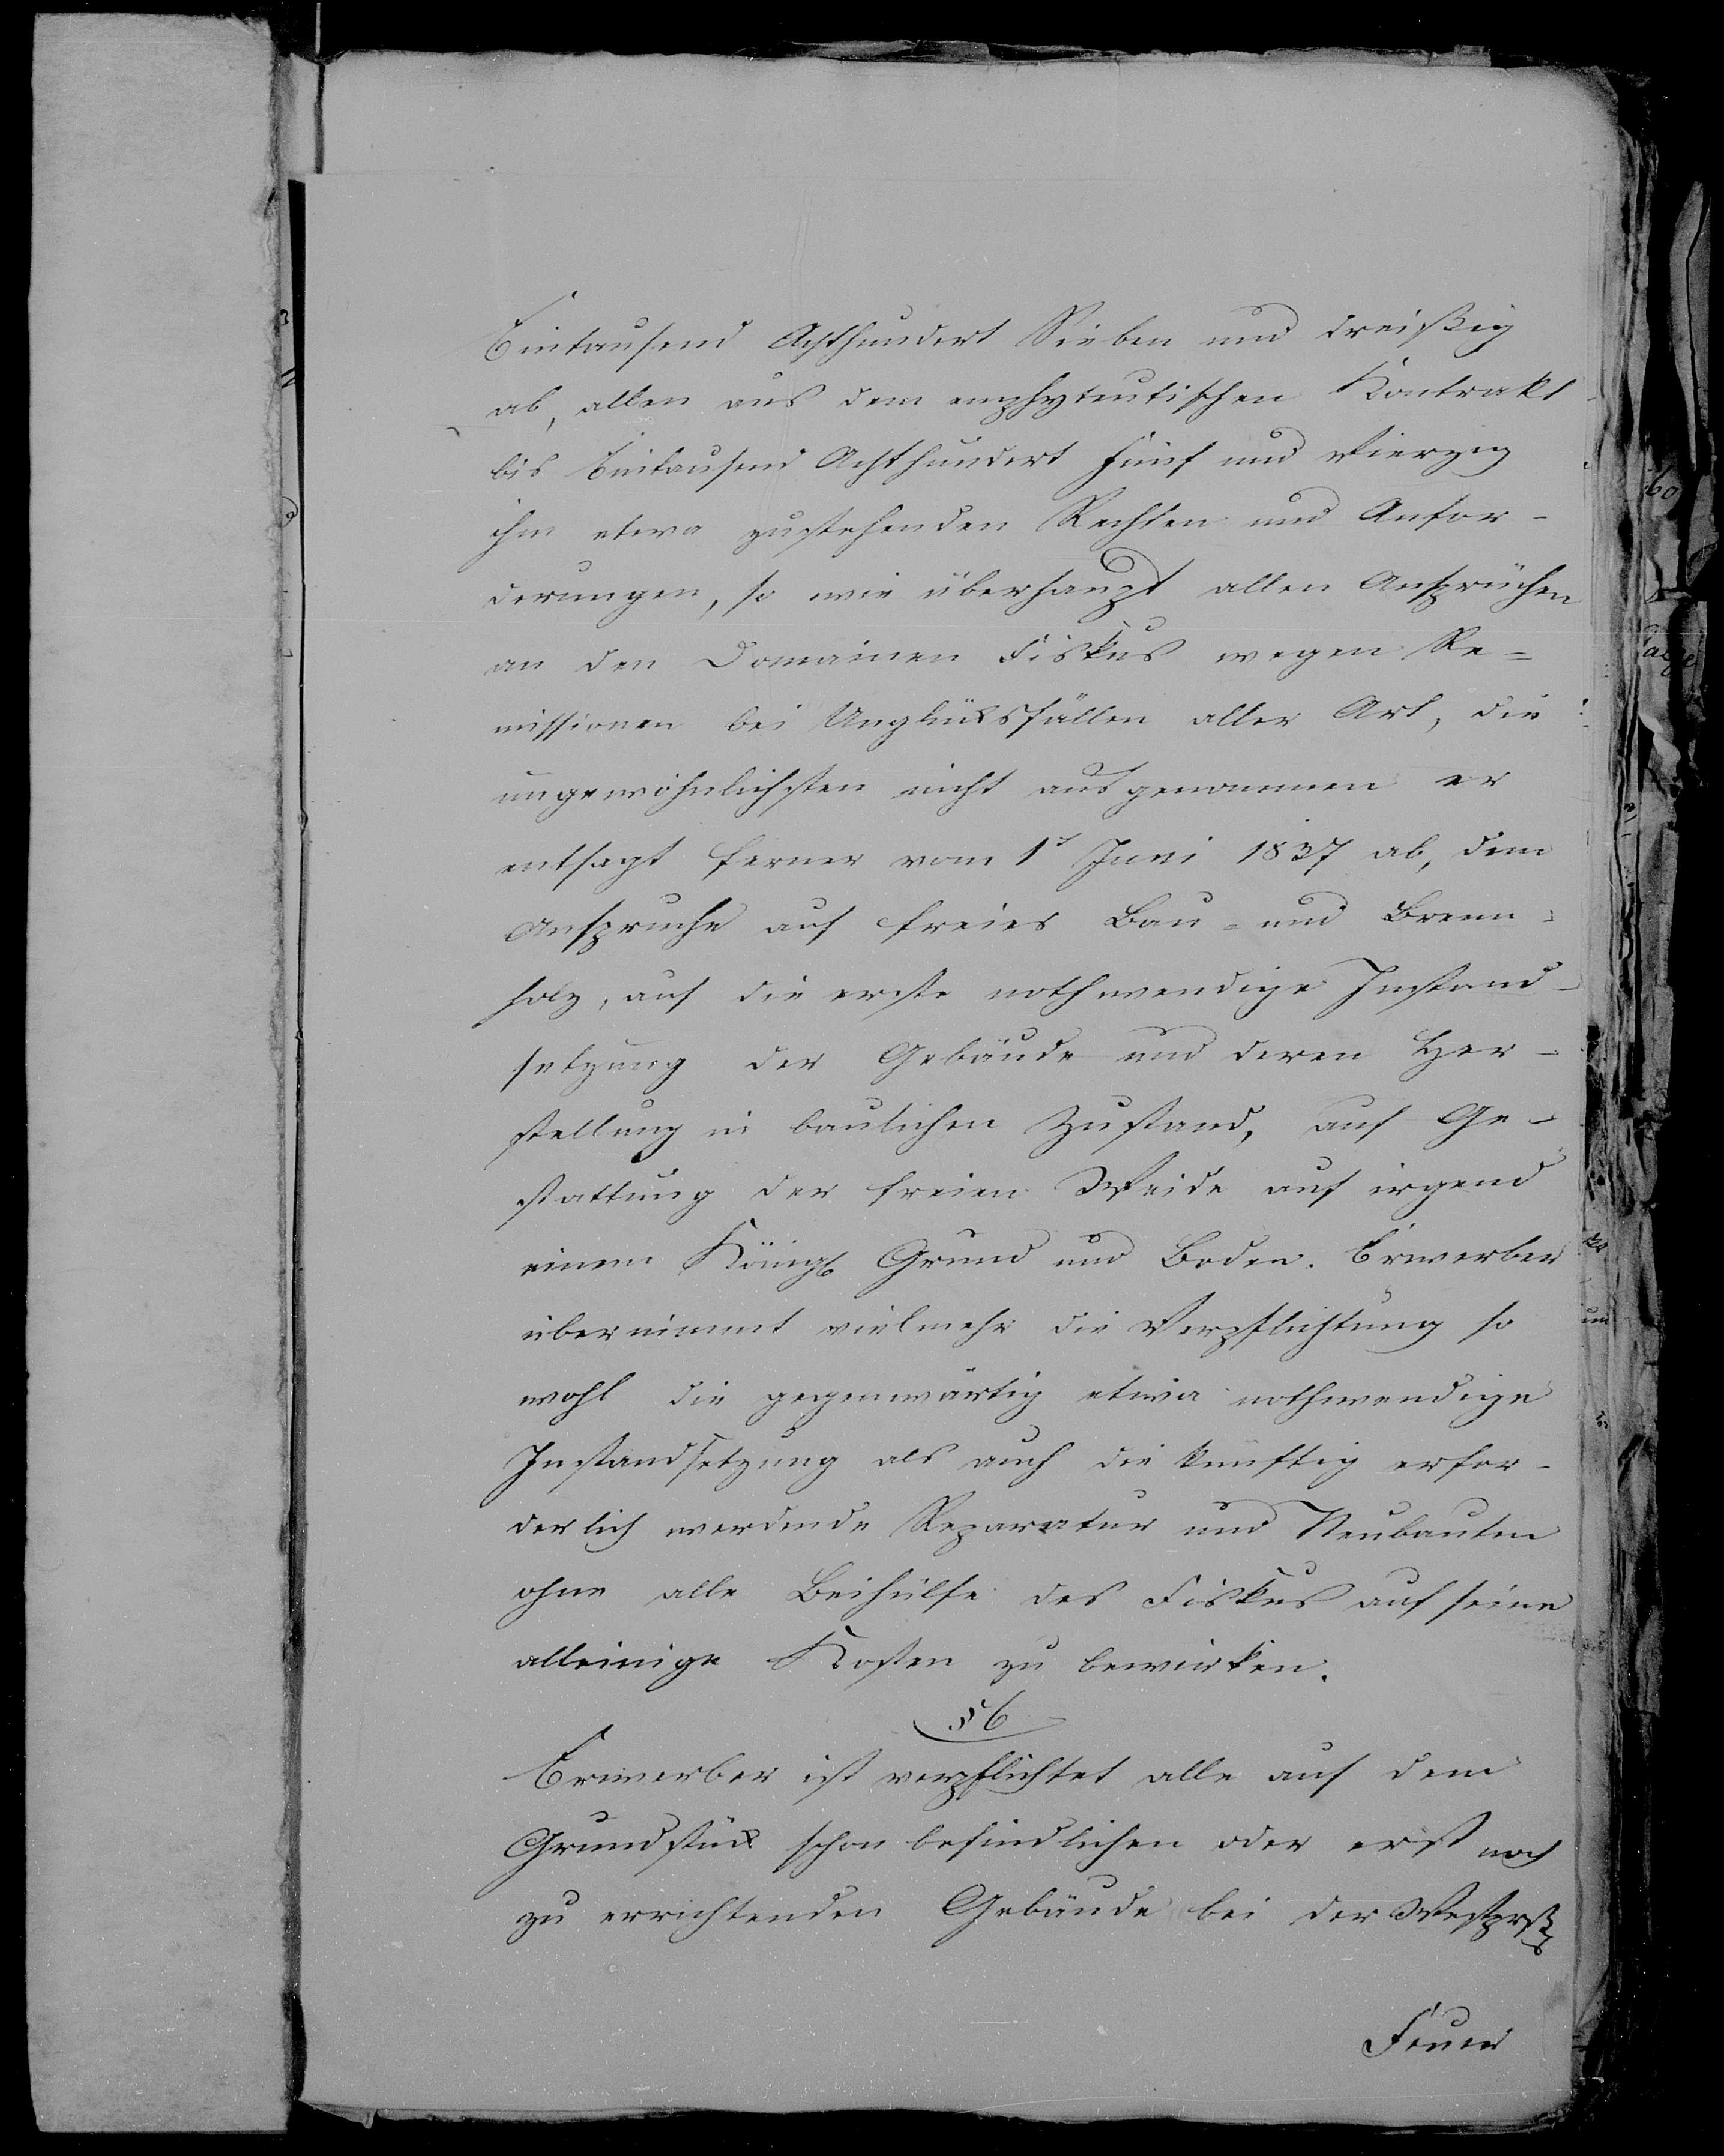 Eintausend Achthundert Sieben und dreißig
ab, allen aus dem emphyteutischen Kontrakt
bis Eintausend Achthundert Fünf und Vierzig
ihm etwa zustehenden Rechten und Anfor-
derungen, so wie überhaupt allen Ansprüchen
an den Domainen Fiskus wegen Re=
missionen bei Unglüksfällen aller Art, die
ungewöhnlichsten nicht ausgenommen er
entsagt ferner vom 1t Juni 1837 ab, dem
Anspruche auf freies Bau= und Brenn=
holz, auf die erste nothwendige Instand-
setzung der Gebäude und deren Her-
stellung in baulichen Zustand, auf Ge-
stattung der freien Weide auf irgend
einem Königl Grund und Boden. Erwerber
übernimmt vielmehr die Verpflichtung so
wohl die gegenwärtig etwa nothwendige
Instandsetzung als auch die künftig erfor-
derlich werdende Reparatur und Neubauten
ohne alle Beihülfe des Fiskus auf seine
alleinige Kosten zu bewirken.
§ 6
Erwerber ist verpflichtet alle auf dem
Grundstük schon befindlichen oder erst noch
zu errichtenden Gebäude bei der Westprß
Feuer